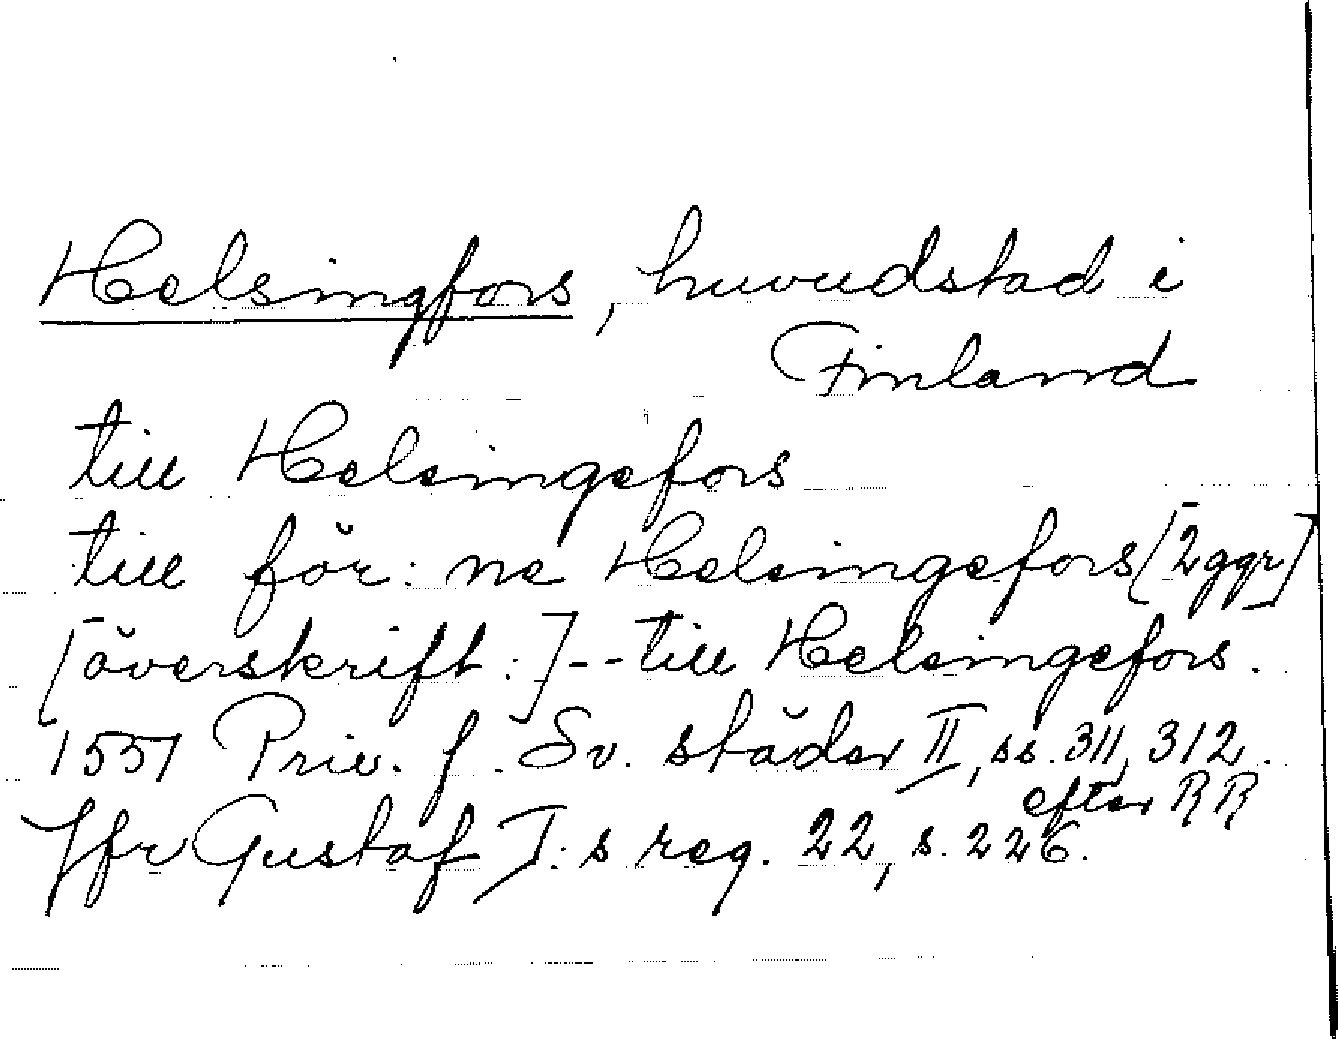 Helsingfors, huvudstad i
Finland
till Helsingefors
till för: ne Helsingefors [2 ggr]
[överskrift:] -- till Helsingefors.
1551 Priv. f. Sv. städer II, ss. 311, 312.
efter RR
Jfr Gustaf I:s reg. 22, s. 226.